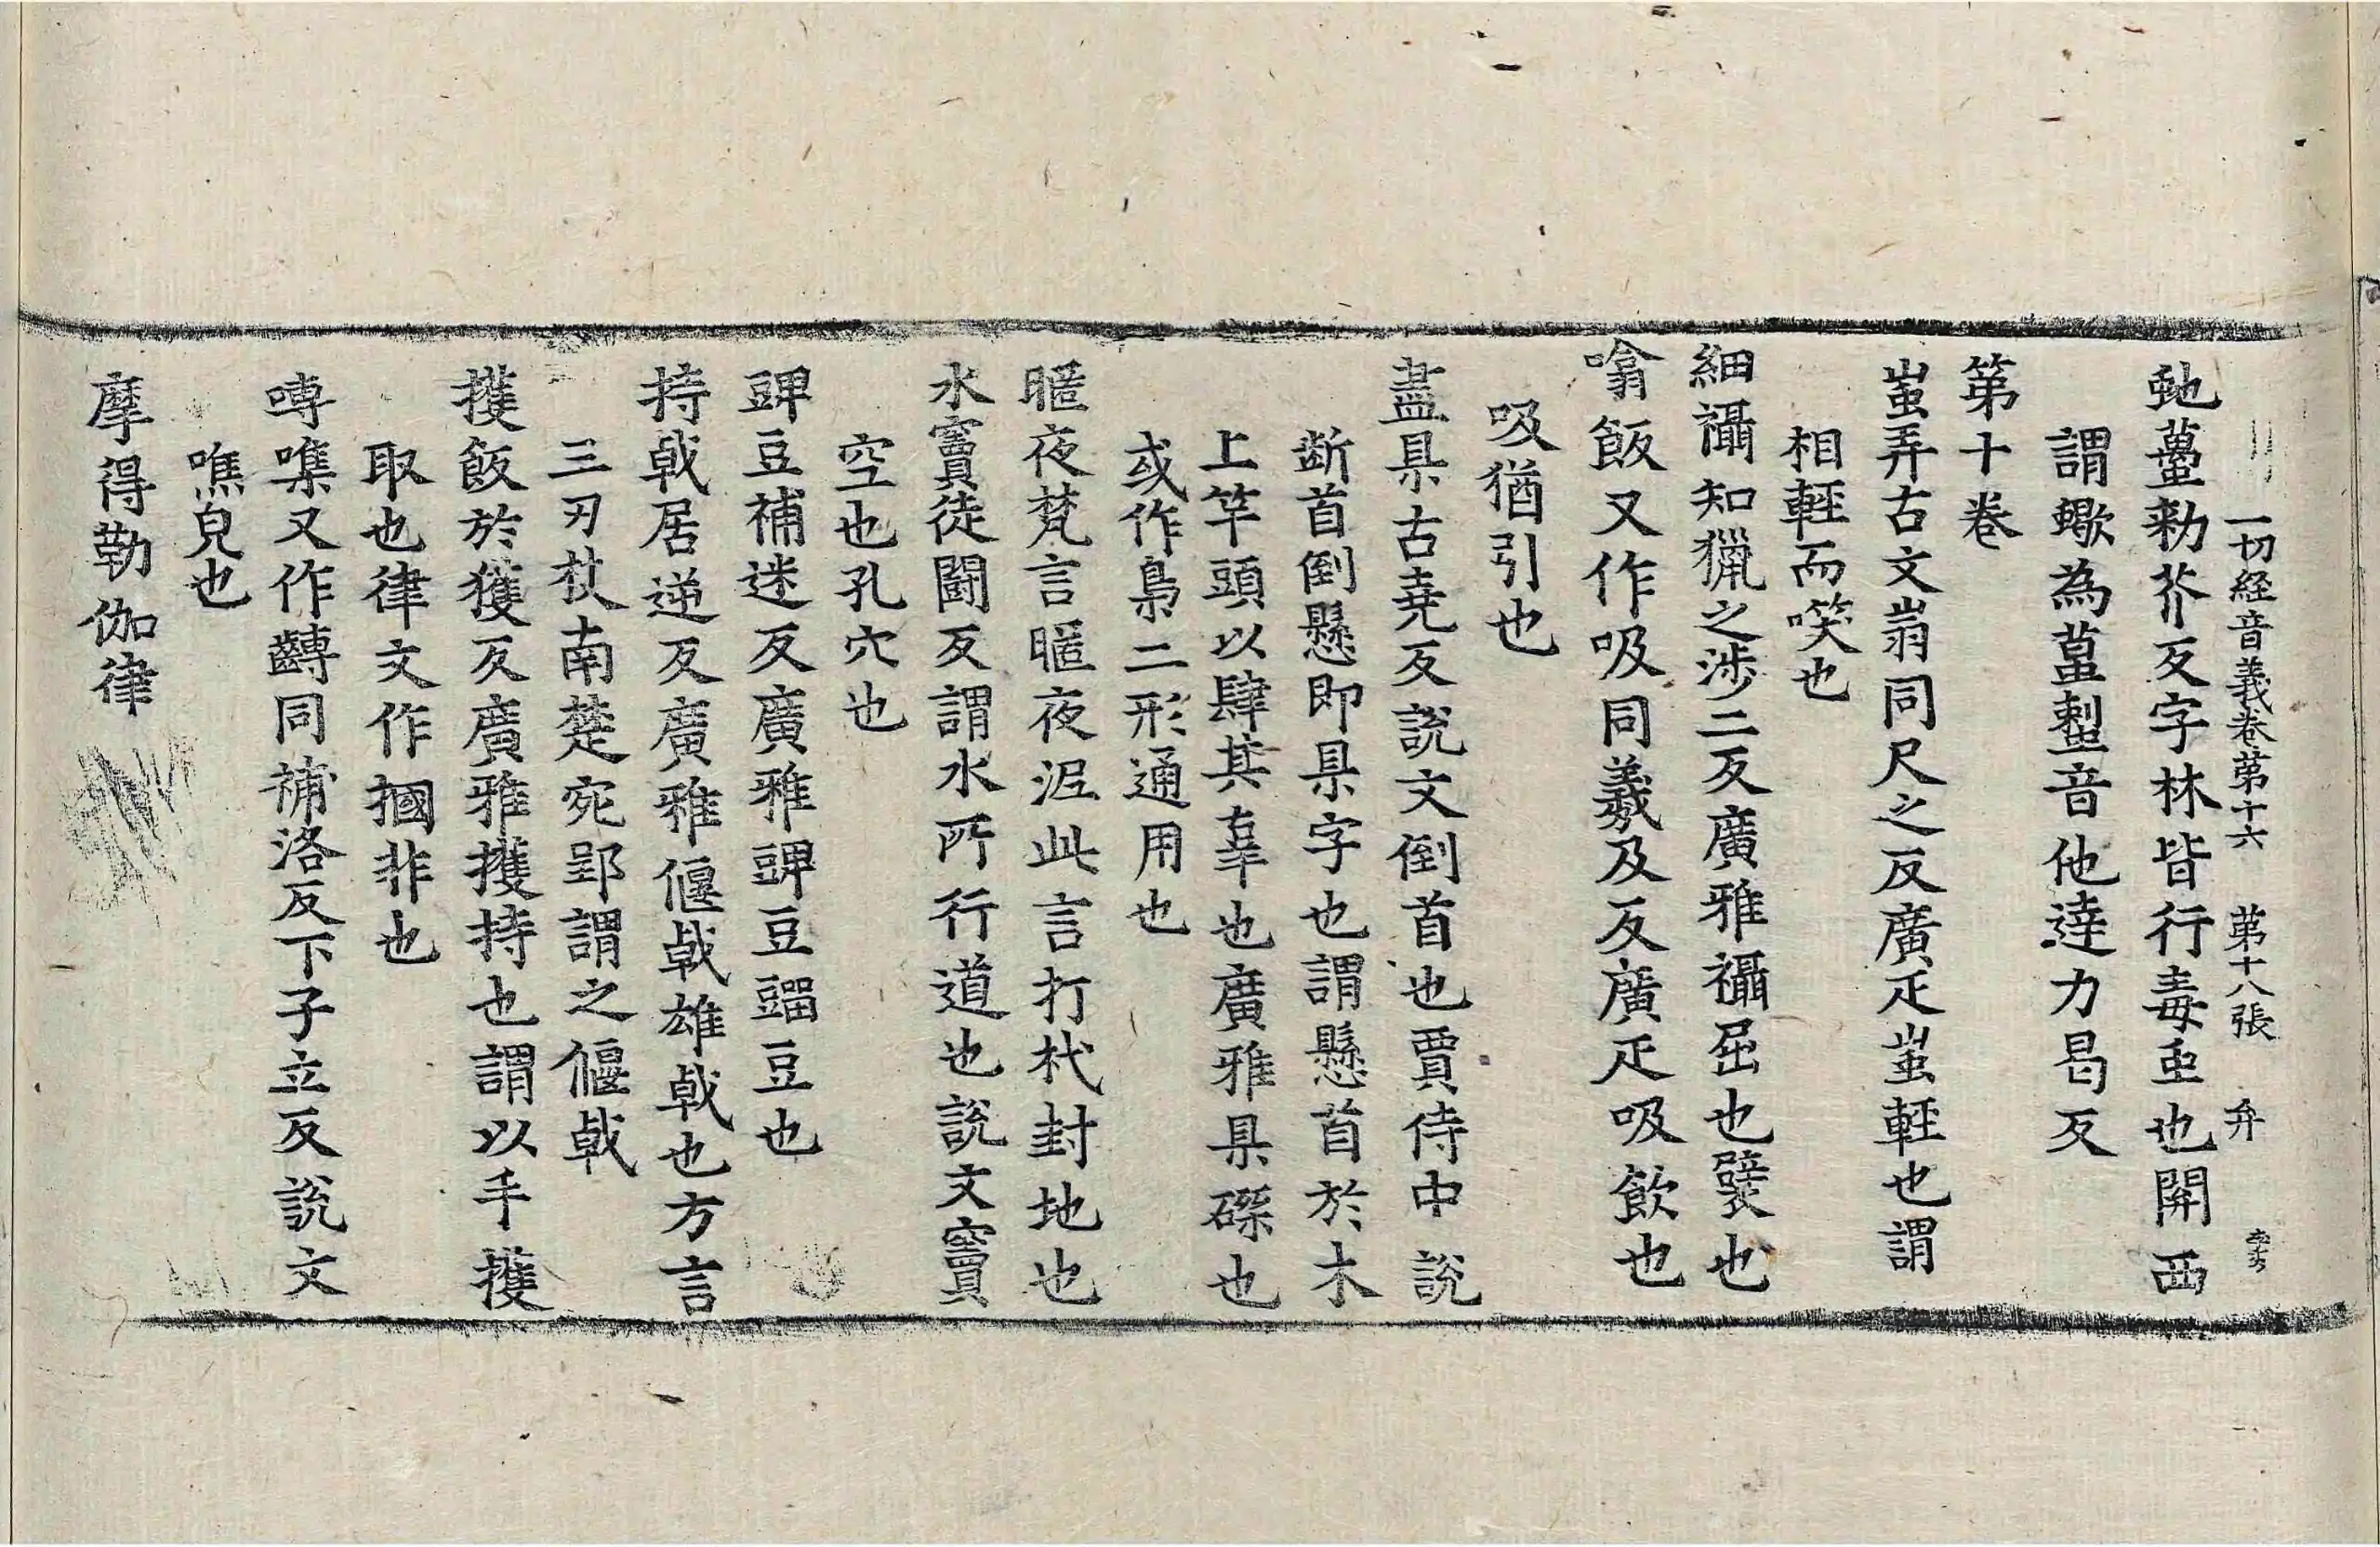 一切経音義卷第十六　第十八張　弁
虵蠆勑芥反字林皆行毒䖝也關西
謂蠍為蠆𧍒音他達力曷反
第十卷
蚩弄古文㞴同尺之反廣疋蚩輕也謂
相輕而笑也
細襵知獵之涉二反廣雅襵屈也襞也
噏飯又作吸同羲及反廣疋吸飲也
吸猶引也
盡㮆古堯反說文倒首也賈侍中說
断首倒懸即㮆字也謂懸首於木
上竿頭以肆其辜也廣雅㮆磔也
或作梟二形通用也
暱夜梵言暱夜泥此言打杙封地也
水竇徒鬪反謂水所行道也說文竇
空也孔穴也
豍豆補迷反廣雅豍豆䝁豆也
持戟居逆反廣雅偃戟雄戟也方言
三刃杖南楚宛郢謂之偃戟
擭飯於獲反廣雅擭持也謂以手擭
取也律文作摑非也
嚩噍又作齳同補洛反下子立反說文
噍皃也
摩得勒伽律